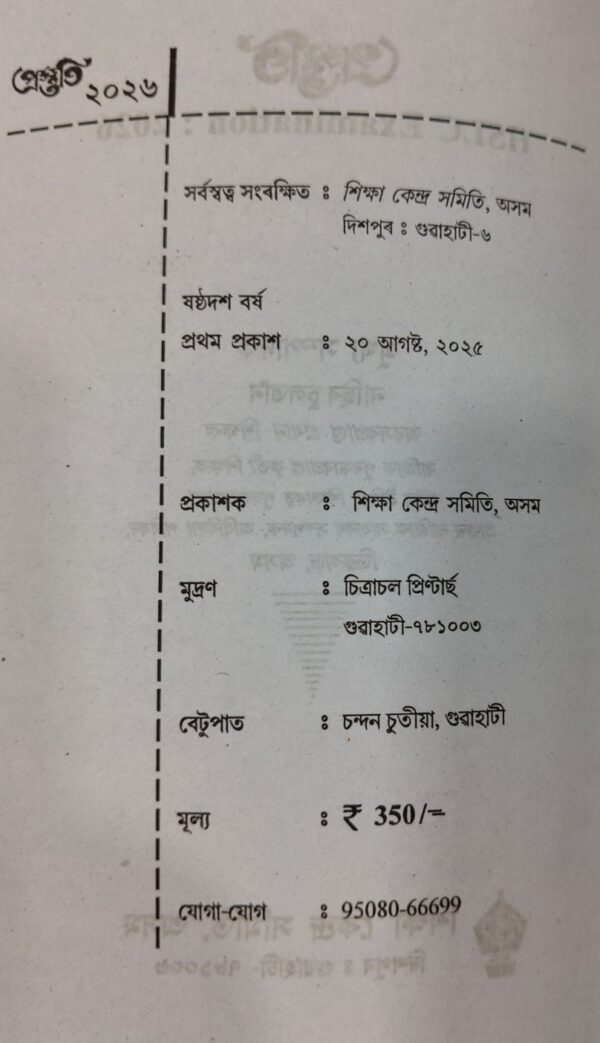 প্ৰস্তুতি ২০২৬
সৰ্বস্বত্ব সংৰক্ষিত : শিক্ষা কেন্দ্ৰ সমিতি, অসম
দিশপুৰ : গুৱাহাটী-৬
ষষ্ঠদশ বৰ্ষ
প্ৰথম প্ৰকাশ : ২০ আগষ্ট, ২০২৫
প্ৰকাশক : শিক্ষা কেন্দ্ৰ সমিতি, অসম
মুদ্ৰণ : চিত্ৰাচল প্ৰিণ্টাৰ্ছ
গুৱাহাটী-৭৮১০০৩
বেটুপাত : চন্দন চুতীয়া, গুৱাহাটী
মূল্য : ₹ 350/=
যোগা-যোগ : 95080-66699